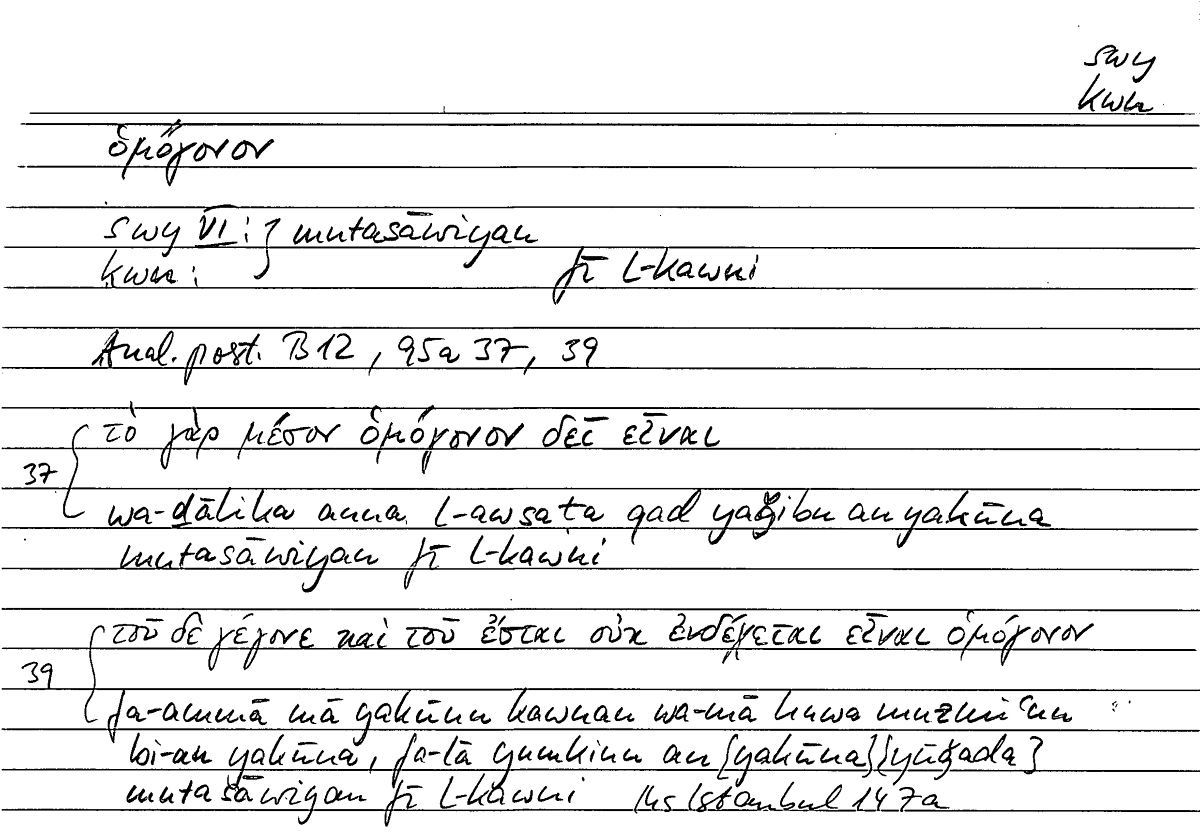 swy
kwn
ὁμόγονον
swy VI : } mutasāwiyan
kwn : fī l-kawni
Anal. post. B 12, 95a 37, 39
τὸ γὰρ μέσον ὁμόγονον δεῖ εἶναι
37
wa-ḏālika anna l-awsaṭa qad yaǧibu an yakūna
mutasāwiyan fī l-kawni
τοῦ δὲ γέγονε καὶ τοῦ ἔσται οὐκ ἐνδέχεται εἶναι ὁμόγονον
39
fa-ammā mā yakūnu kawnan wa-mā huwa muzmiʿun
bi-an yakūna, fa-lā yumkinu an [yakūna] {yūǧada}
mutasāwiyan fī l-kawni Hs Istanbul 147a